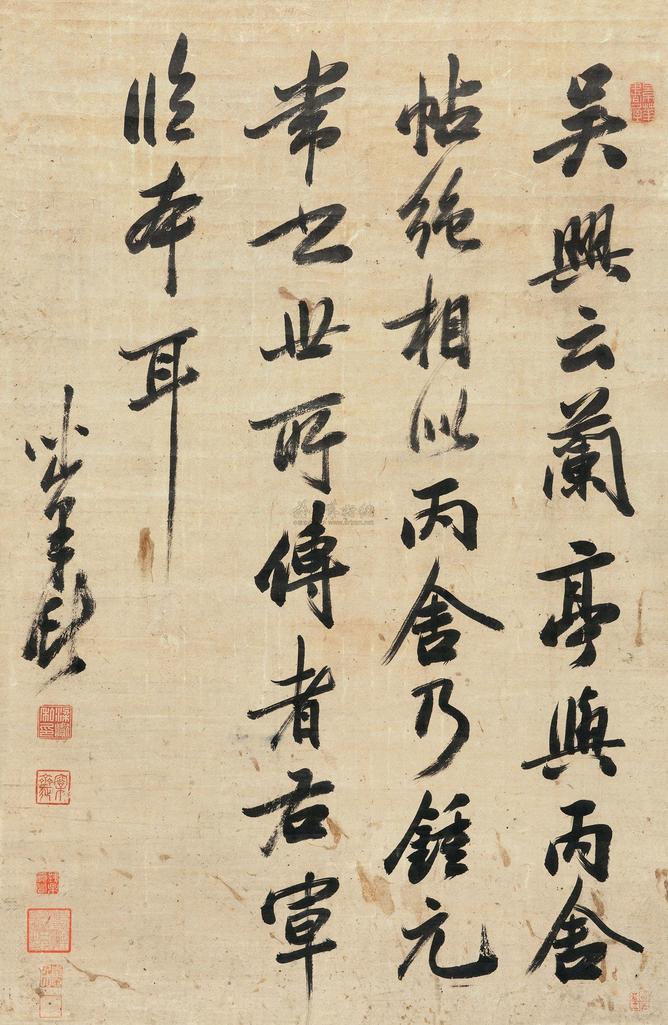 吳興云蘭亭與丙舍
帖絶相似丙舍乃鍾元
常書世所傳者右軍
臨本耳